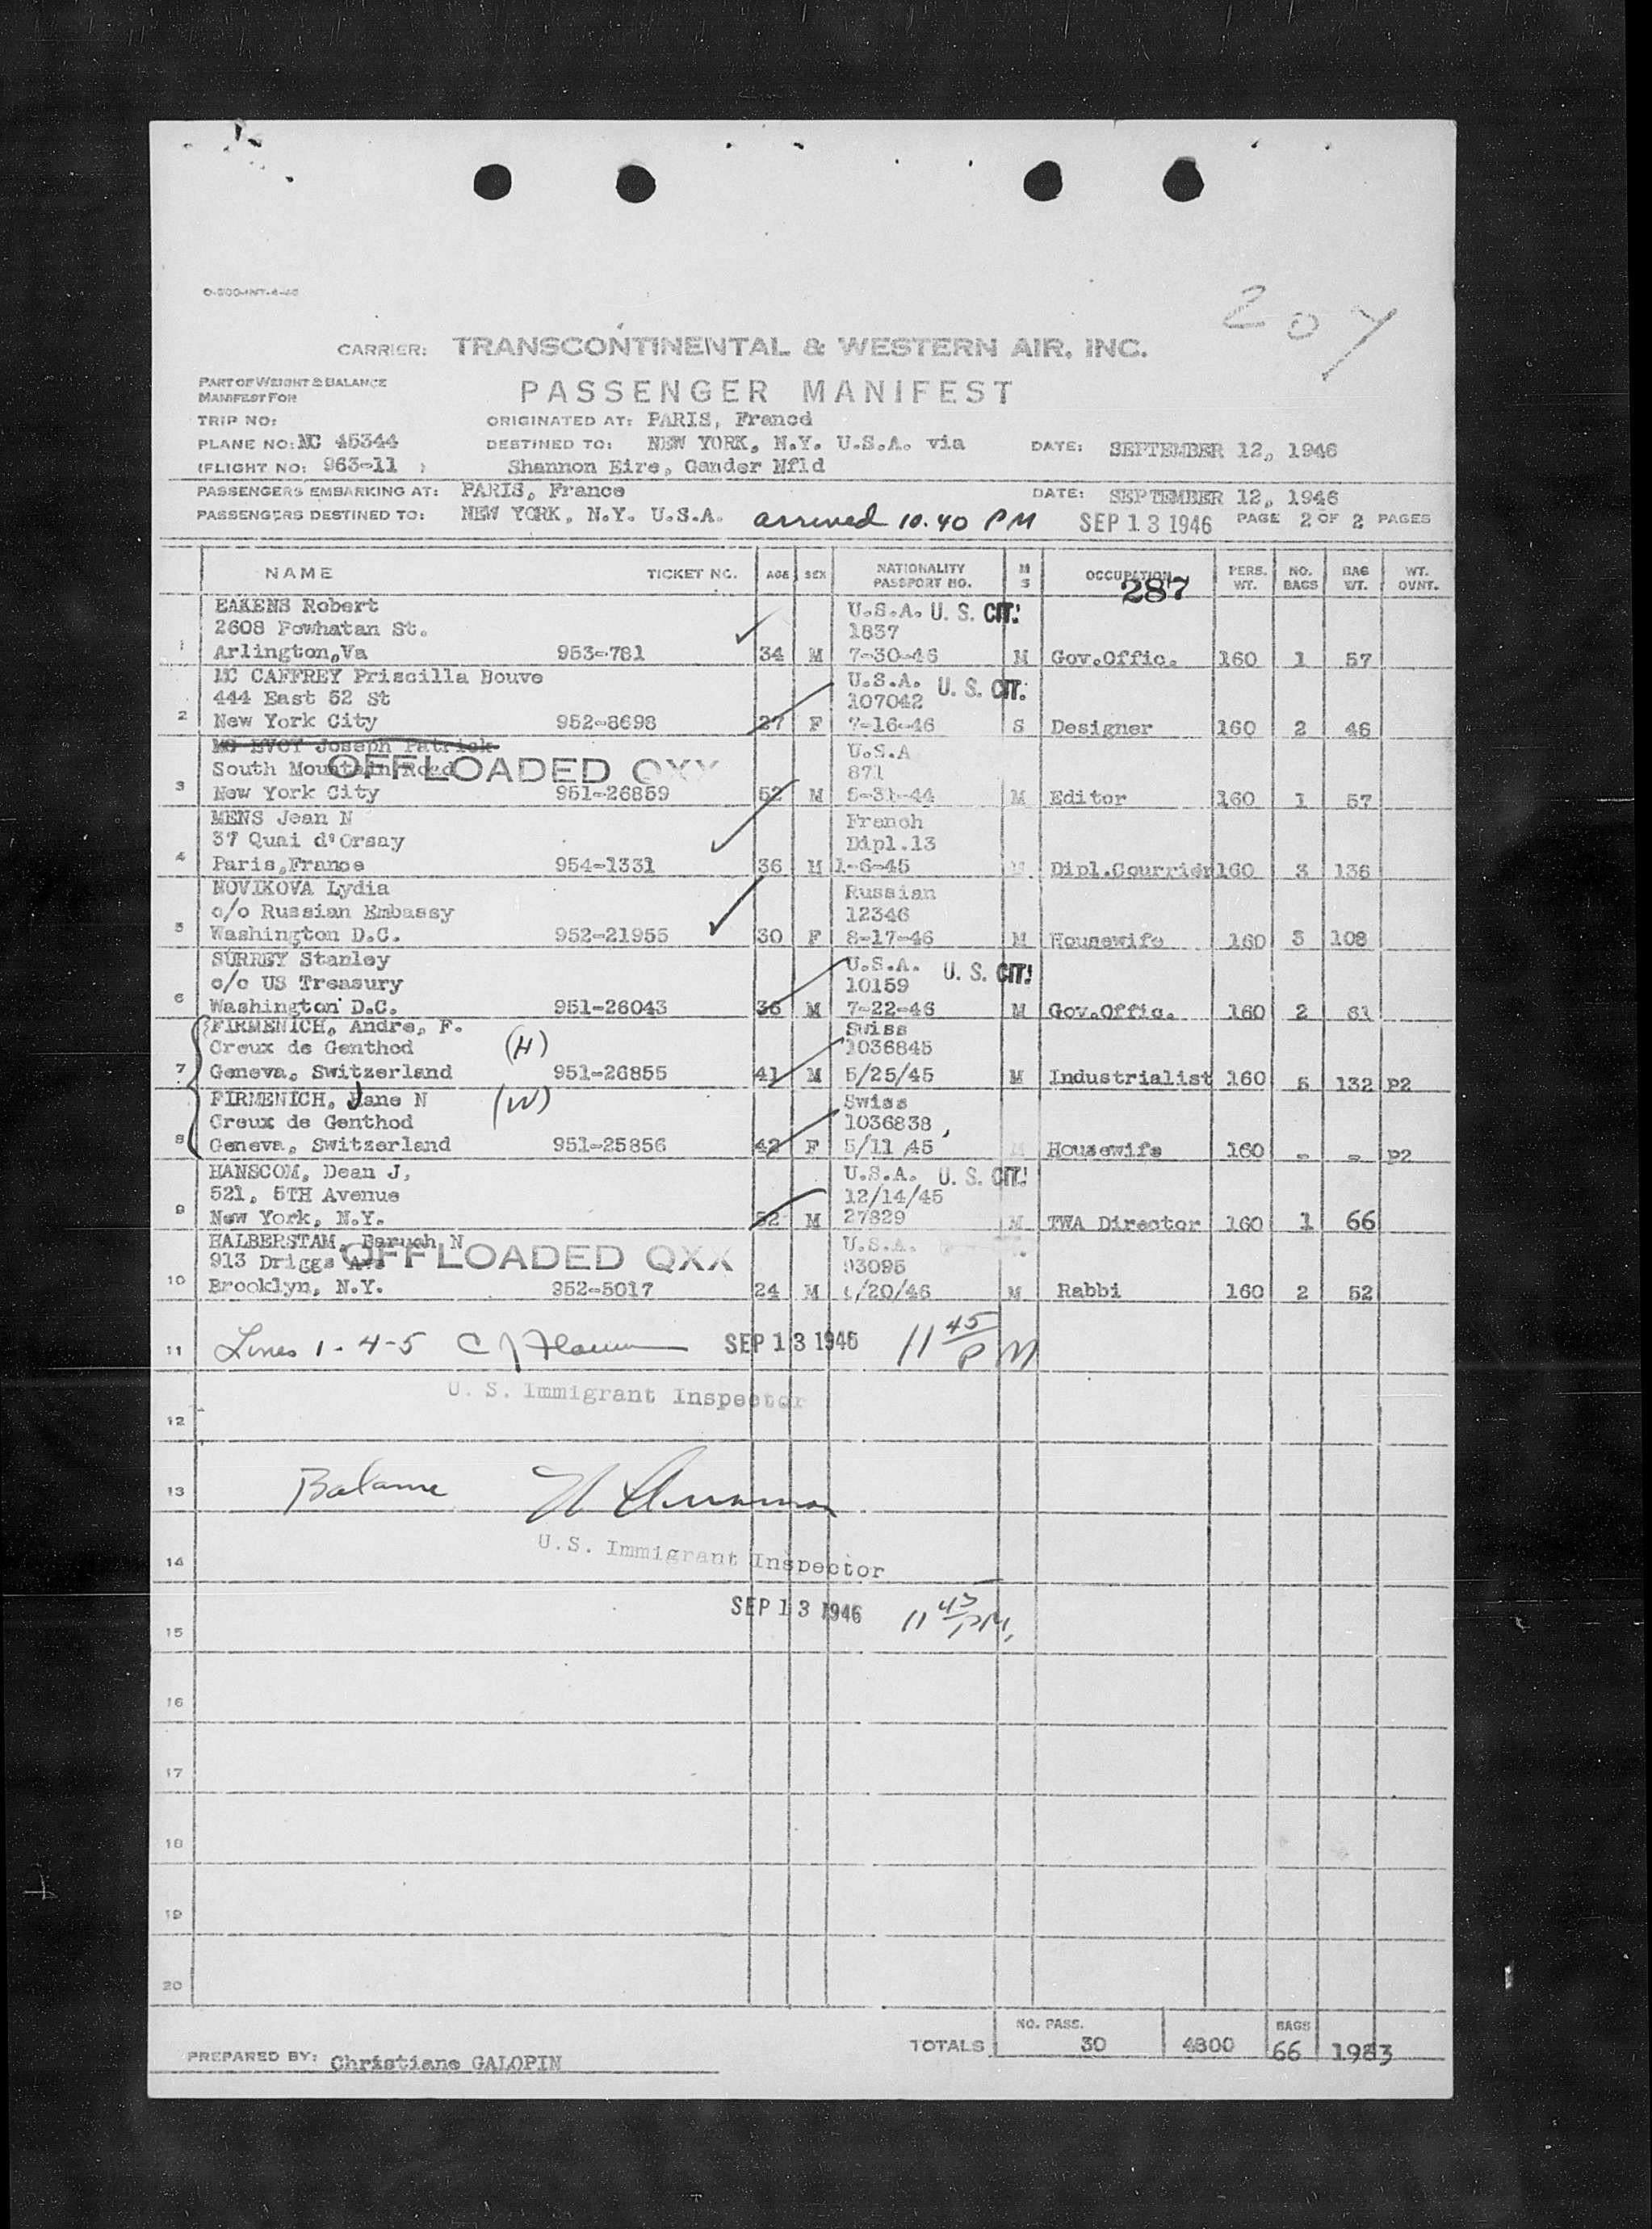 O-200-INT-4-46
207
CARRIER: TRANSCONTINENTAL & WESTERN AIR, INC.
PART OF WEIGHT & BALANCE
MANIFEST FOR
PASSENGER MANIFEST
TRIP NO: ORIGINATED AT: PARIS, Francd
PLANE NO: NC 45344 DESTINED TO: NEW YORK, N.Y. U.S.A. via DATE: SEPTEMBER 12, 1946
(FLIGHT NO: 963-11 ) Shannon Eire, Gander Nfld
PASSENGERS EMBARKING AT: PARIS, France DATE: SEPTEMBER 12, 1946
PASSENGERS DESTINED TO: NEW YORK, N.Y. U.S.A. arrived 10.40 PM SEP 13 1946 PAGE 2 OF 2 PAGES
NAME TICKET NO. AGE SEX NATIONALITY PASSPORT NO. M S OCCUPATION PERS. WT. NO. BAGS BAG WT. WT. OVNT.
287
EAKENS Robert U.S.A. U. S. CIT.
2608 Powhatan St. 1837
1 Arlington,Va 953-781 34 M 7-30-46 M Gov.Offic. 160 1 57
MC CAFFREY Priscilla Bouve U.S.A. U. S. CIT.
444 East 52 St 107042
2 New York City 952-8698 27 F 7-16-46 S Designer 160 2 46
MC EVOY Joseph Patrick U.S.A
South Mountain Road OFFLOADED QXX 871
3 New York City 951-26859 52 M 5-31-44 M Editor 160 1 57
MENS Jean N French
37 Quai d'Orsay Dipl.13
4 Paris,France 954-1331 36 M 1-6-45 M Dipl.Courrier 160 3 136
NOVIKOVA Lydia Russian
c/o Russian Embassy 12346
5 Washington D.C. 952-21955 30 F 8-17-46 M Housewife 160 5 108
SURREY Stanley U.S.A. U. S. CIT.
c/o US Treasury 10159
6 Washington D.C. 951-26043 36 M 7-22-46 M Gov.Offic. 160 2 61
FIRMENICH, Andre, F. Swiss
Creux de Genthod (H) 1036845
7 Geneva, Switzerland 951-26855 41 M 5/25/45 M Industrialist 160 5 132 P2
FIRMENICH, Jane N (W) Swiss
Creux de Genthod 1036838
8 Geneva, Switzerland 951-25856 42 F 5/11/45 M Housewife 160 - - P2
HANSCOM, Dean J, U.S.A. U. S. CIT.
521, 5TH Avenue 12/14/45
9 New York, N.Y. 52 M 27829 M TWA Director 160 1 66
HALBERSTAM, Baruch N U.S.A.
913 Driggs Ave OFFLOADED QXX 93095
10 Brooklyn, N.Y. 952-5017 24 M /20/46 M Rabbi 160 2 52
11 Lines 1-4-5 SEP 13 1946 11 45 PM
U. S. Immigrant Inspector
12
13 Balance
U.S. Immigrant Inspector
14
SEP 13 1946 11 43 PM.
15
16
17
18
19
20
TOTALS NO. PASS. 30 4800 BAGS 66 1983
PREPARED BY: Christiane GALOPIN